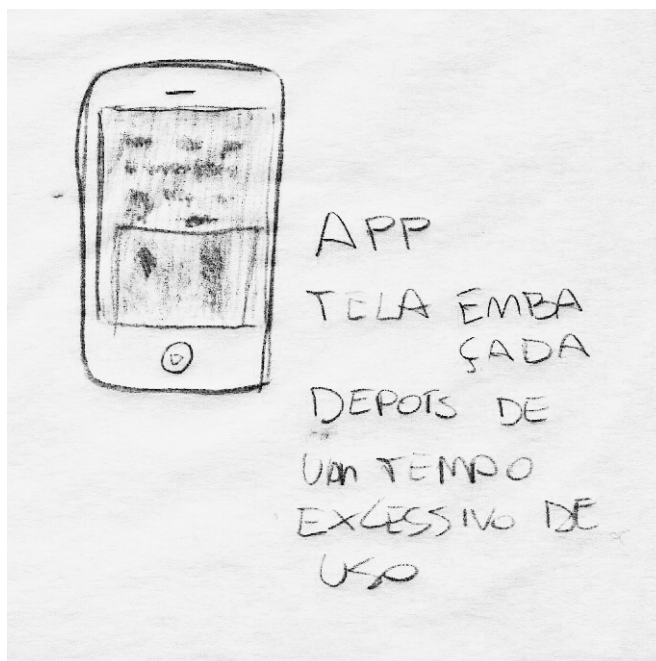 APP
TELA EMBA
ÇADA
DEPOIS DE
UM TEMPO
EXCESSIVO DE
USO